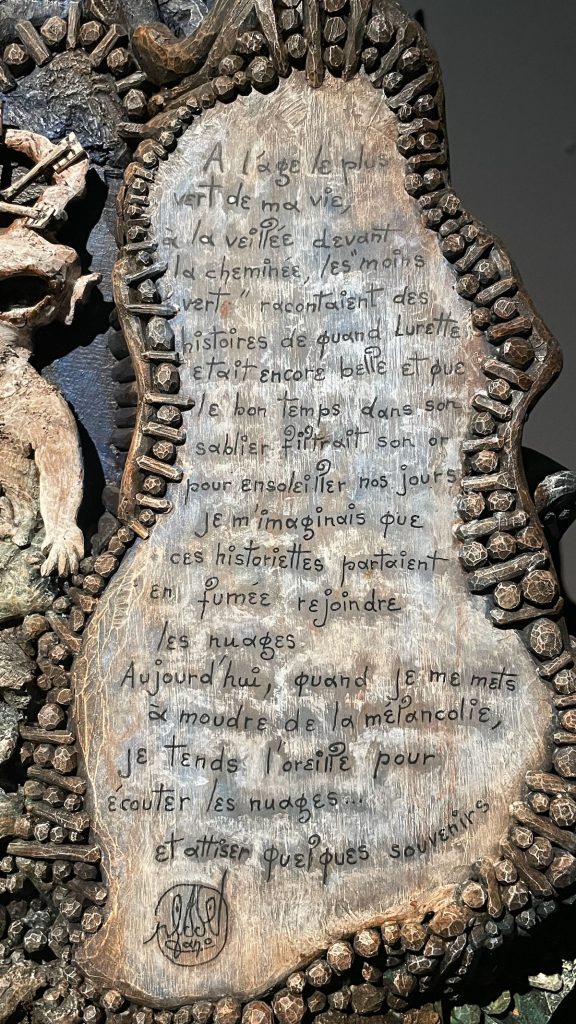 A l'age le plus
vert de ma vie,
à la veillée devant
la cheminée, les "moins
vert" racontaient des
histoires de quand Lurette
etait encore belle et que
le bon temps dans son
sablier filtrait son or
pour ensoleiller nos jours
je m'imaginais que
ces historiettes partaient
en fumée rejoindre
les nuages
Aujourd'hui, quand je me mets
à moudre de la mélancolie,
je tends l'oreille pour
écouter les nuages...
et attiser quelques souvenirs